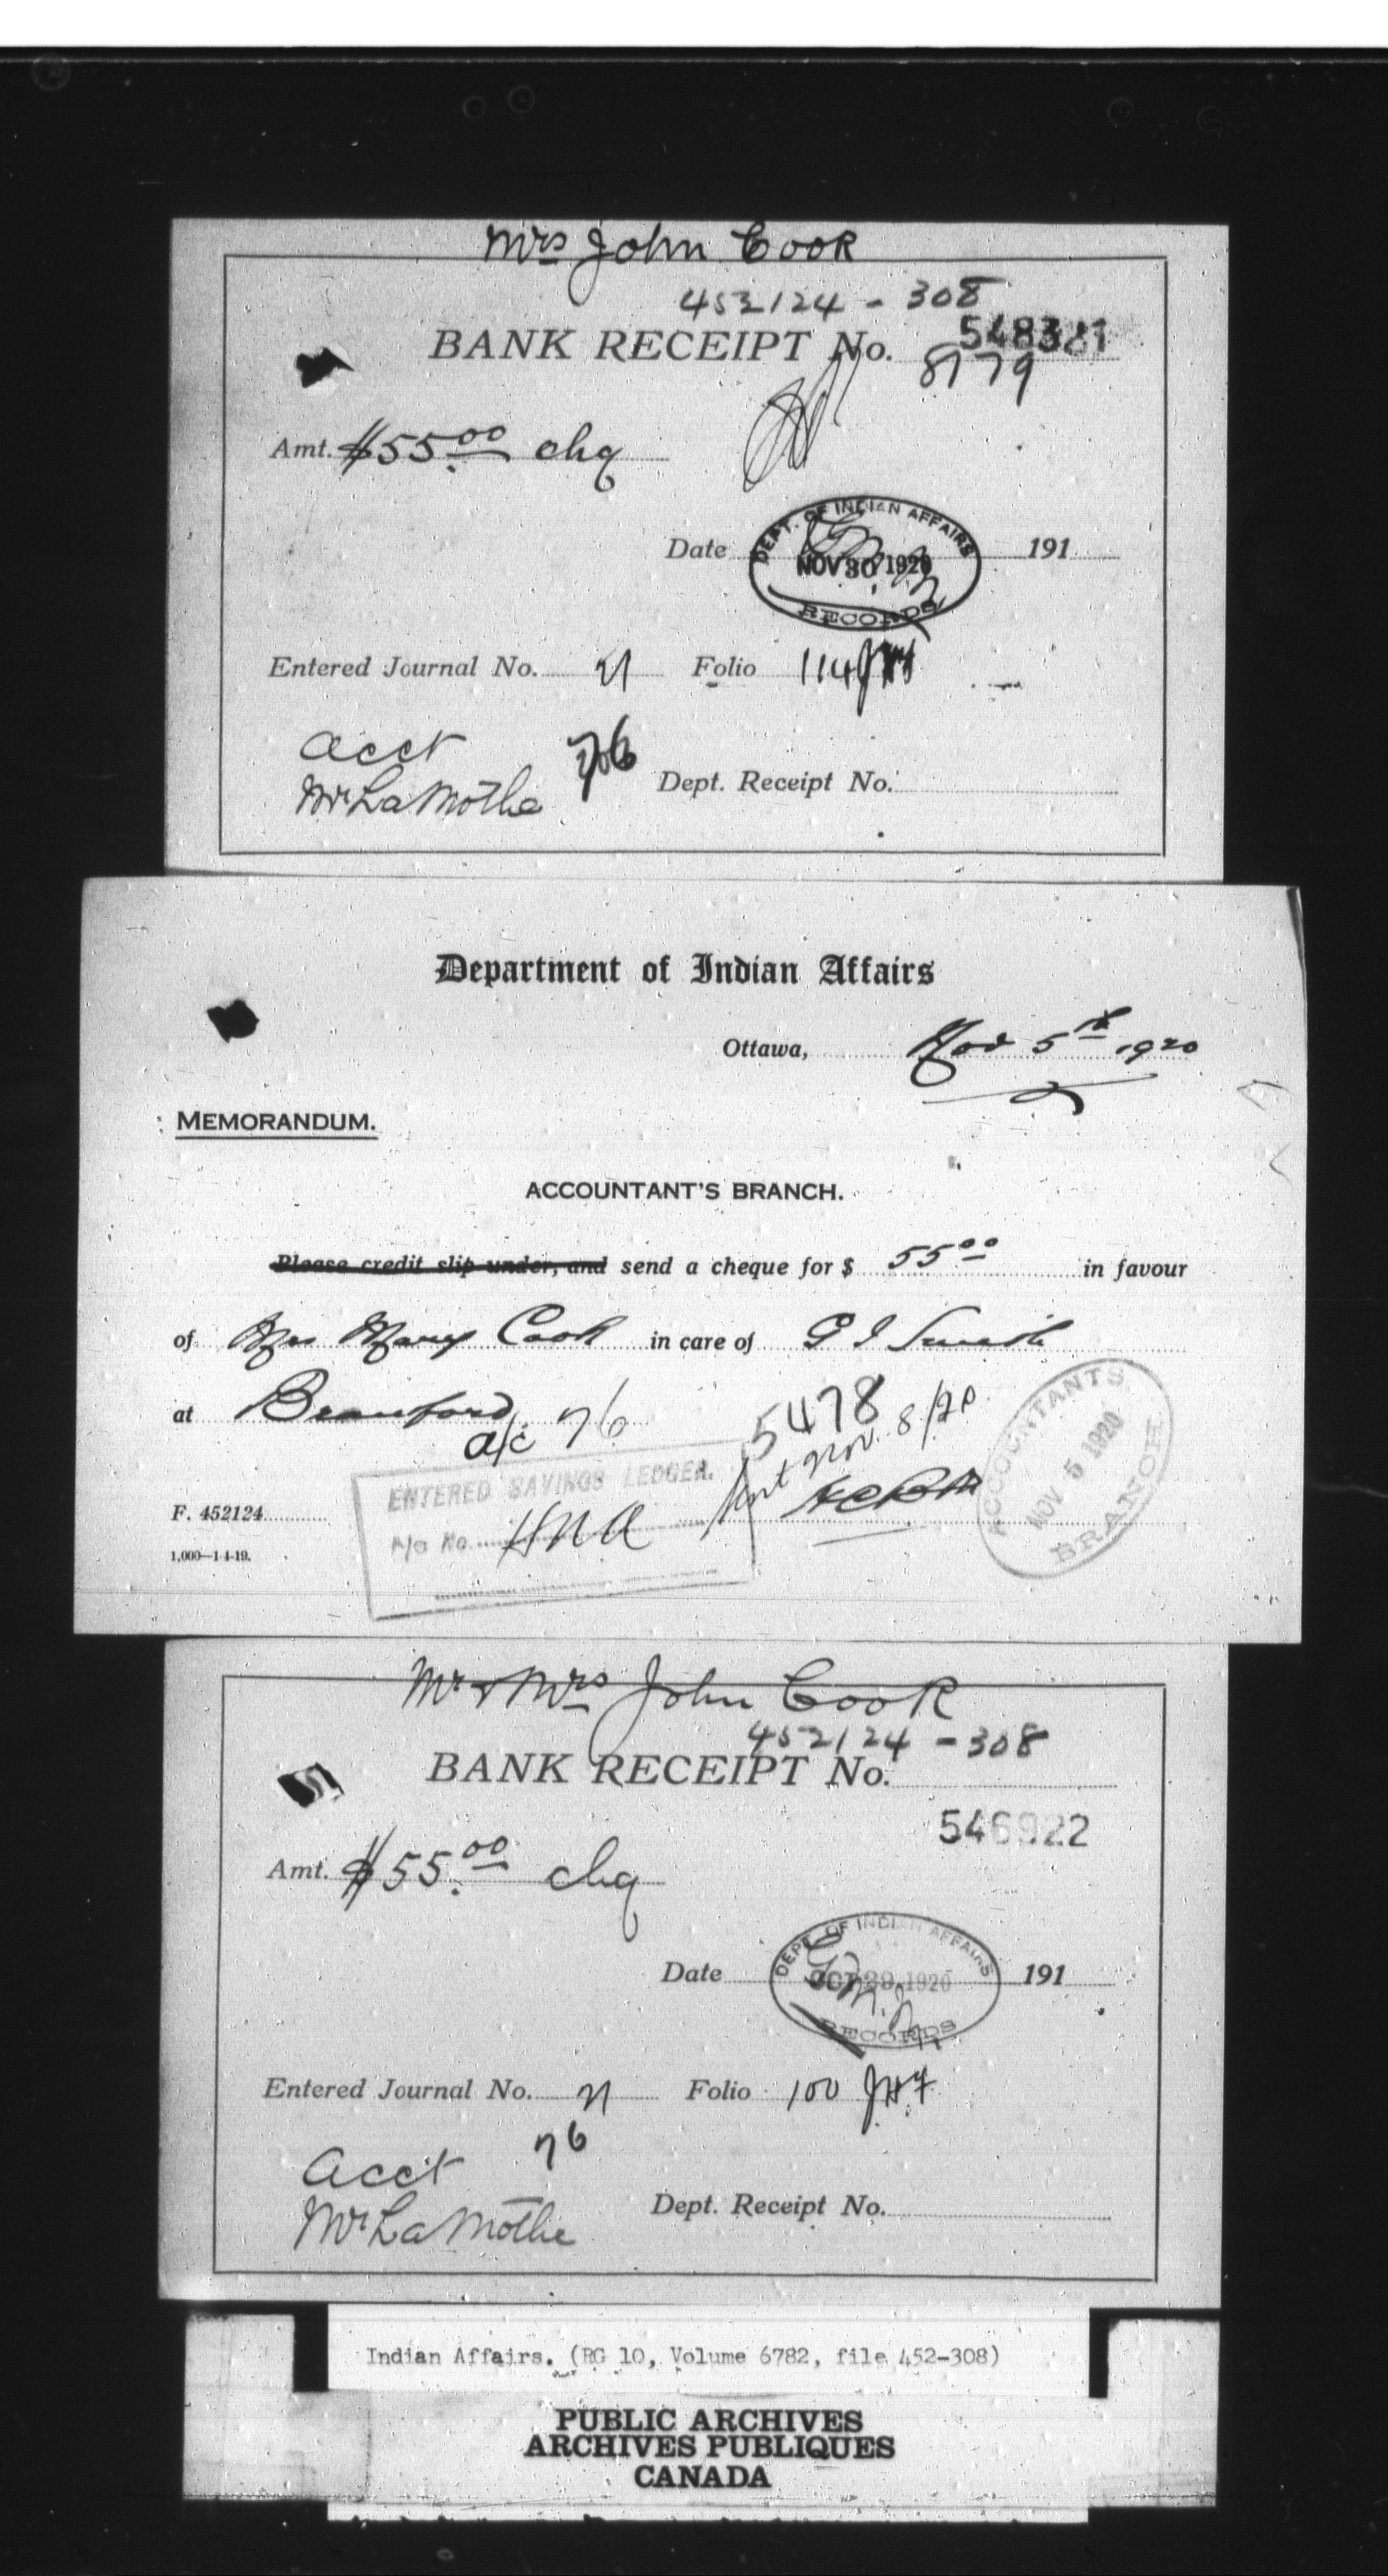 Mrs John Cook
452124 - 308
BANK RECEIPT No. 548321
8779
Amt. $55.00 chq
DEPT. OF INDIAN AFFAIRS
Date NOV 30 1920 191
RECORDS
Entered Journal No. 21 Folio 114
Acct 76
Mr LaMothe Dept. Receipt No.
Department of Indian Affairs
Ottawa, Nov 5th 1920
MEMORANDUM.
ACCOUNTANT'S BRANCH.
Please credit slip under, and send a cheque for $ 55.00 in favour
of Mrs Mary Cook in care of G J Smith
at Brantford
a/c 76 5478
Sent Nov. 8/20
ENTERED SAVINGS LEDGER.
A/c No. HNA
ACCOUNTANTS
NOV 5 1920
BRANCH
F. 452124
1,000—1-4-19.
Mr & Mrs John Cook
452124 - 308
BANK RECEIPT No.
546922
Amt. $55.00 chq
DEPT. OF INDIAN AFFAIRS
Date OCT 29 1920 191
RECORDS
Entered Journal No. 21 Folio 100 J.H.F.
Acct 76
Mr LaMothe Dept. Receipt No.
Indian Affairs. (RG 10, Volume 6782, file 452-308)
PUBLIC ARCHIVES
ARCHIVES PUBLIQUES
CANADA